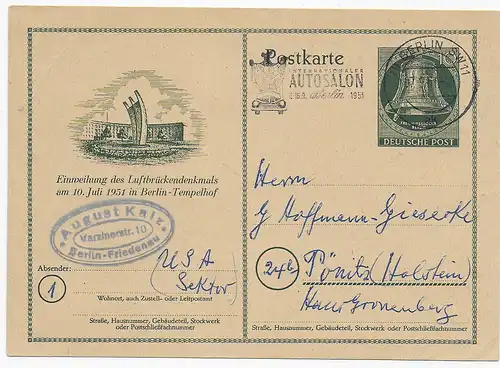 Postkarte
INTERNATIONALER
AUTOSALON
Berlin 1951
BERLIN SW 11
DEUTSCHE POST
Einweihung des Luftbrückendenkmals
am 10. Juli 1951 in Berlin-Tempelhof
August Kalz
Varzinerstr. 10
Berlin-Friedenau
Absender:
USA
(Sektor)
1
Wohnort, auch Zustell- oder Leitpostamt
Straße, Hausnummer, Gebäudeteil, Stockwerk
oder Postschließfachnummer
Herrn
G Hoffmann-Giesecke
24b
Pönitz (Holstein)
Haus Gronenberg
Straße, Hausnummer, Gebäudeteil, Stockwerk oder Postschließfachnummer